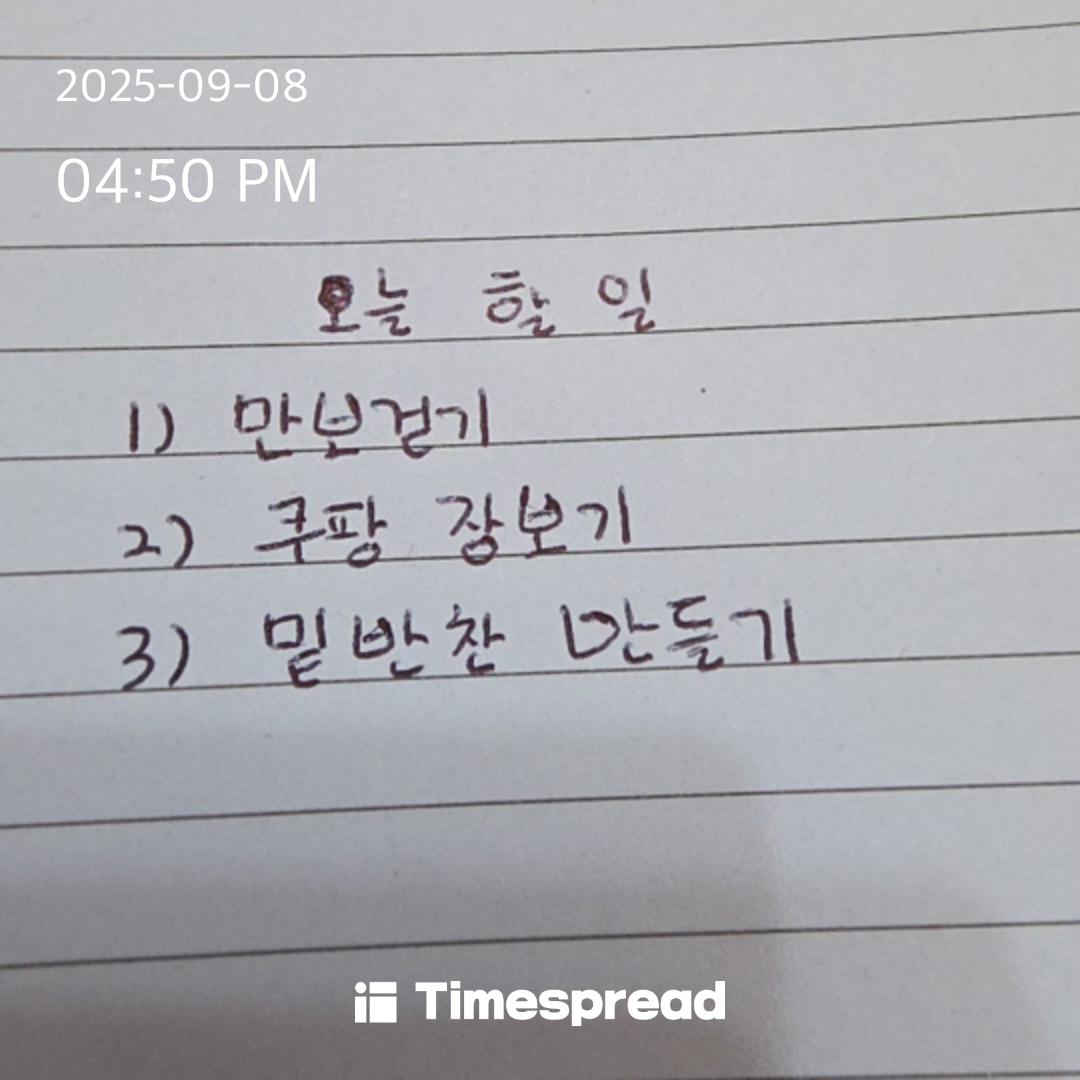 2025-09-08
04:50 PM
오늘 할 일
1) 만보걷기
2) 쿠팡 장보기
3) 밑반찬 만들기
Timespread